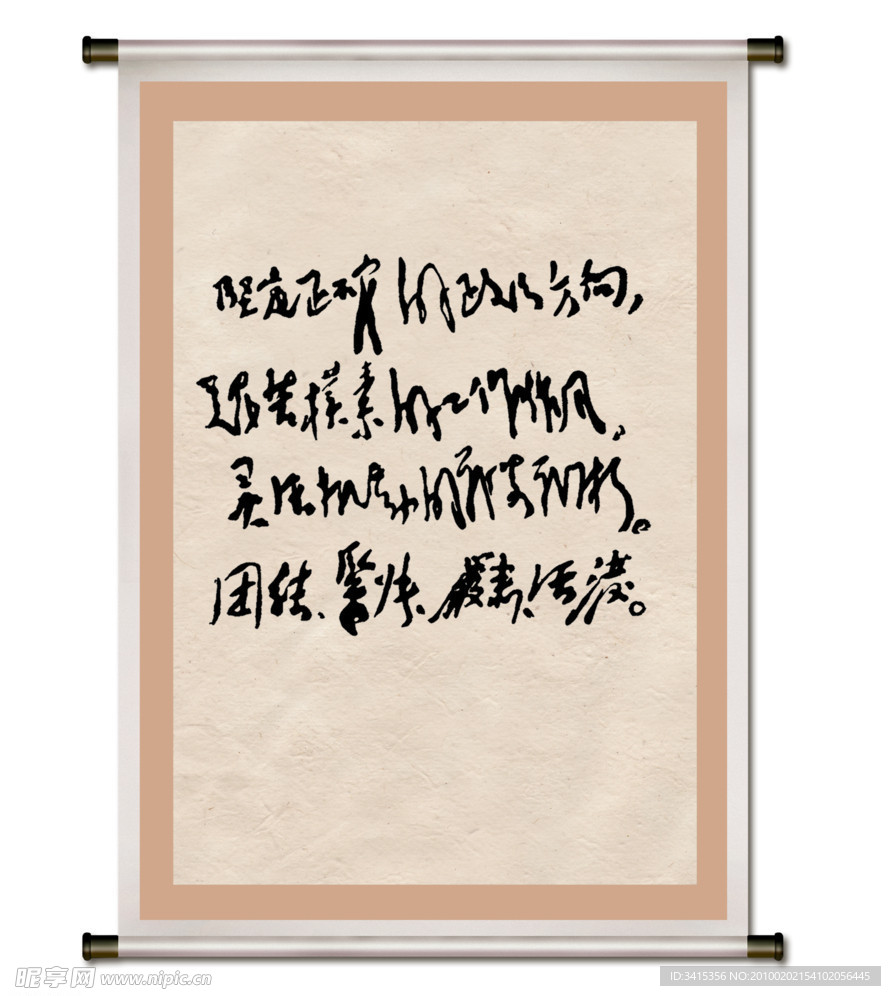 堅定正确的政治方向，
艰苦樸素的工作作风，
灵活机动的战略战术。
团结、緊张、嚴肅、活潑。
昵享网 www.nipic.cn
ID:3415356 NO:20100202154102056445